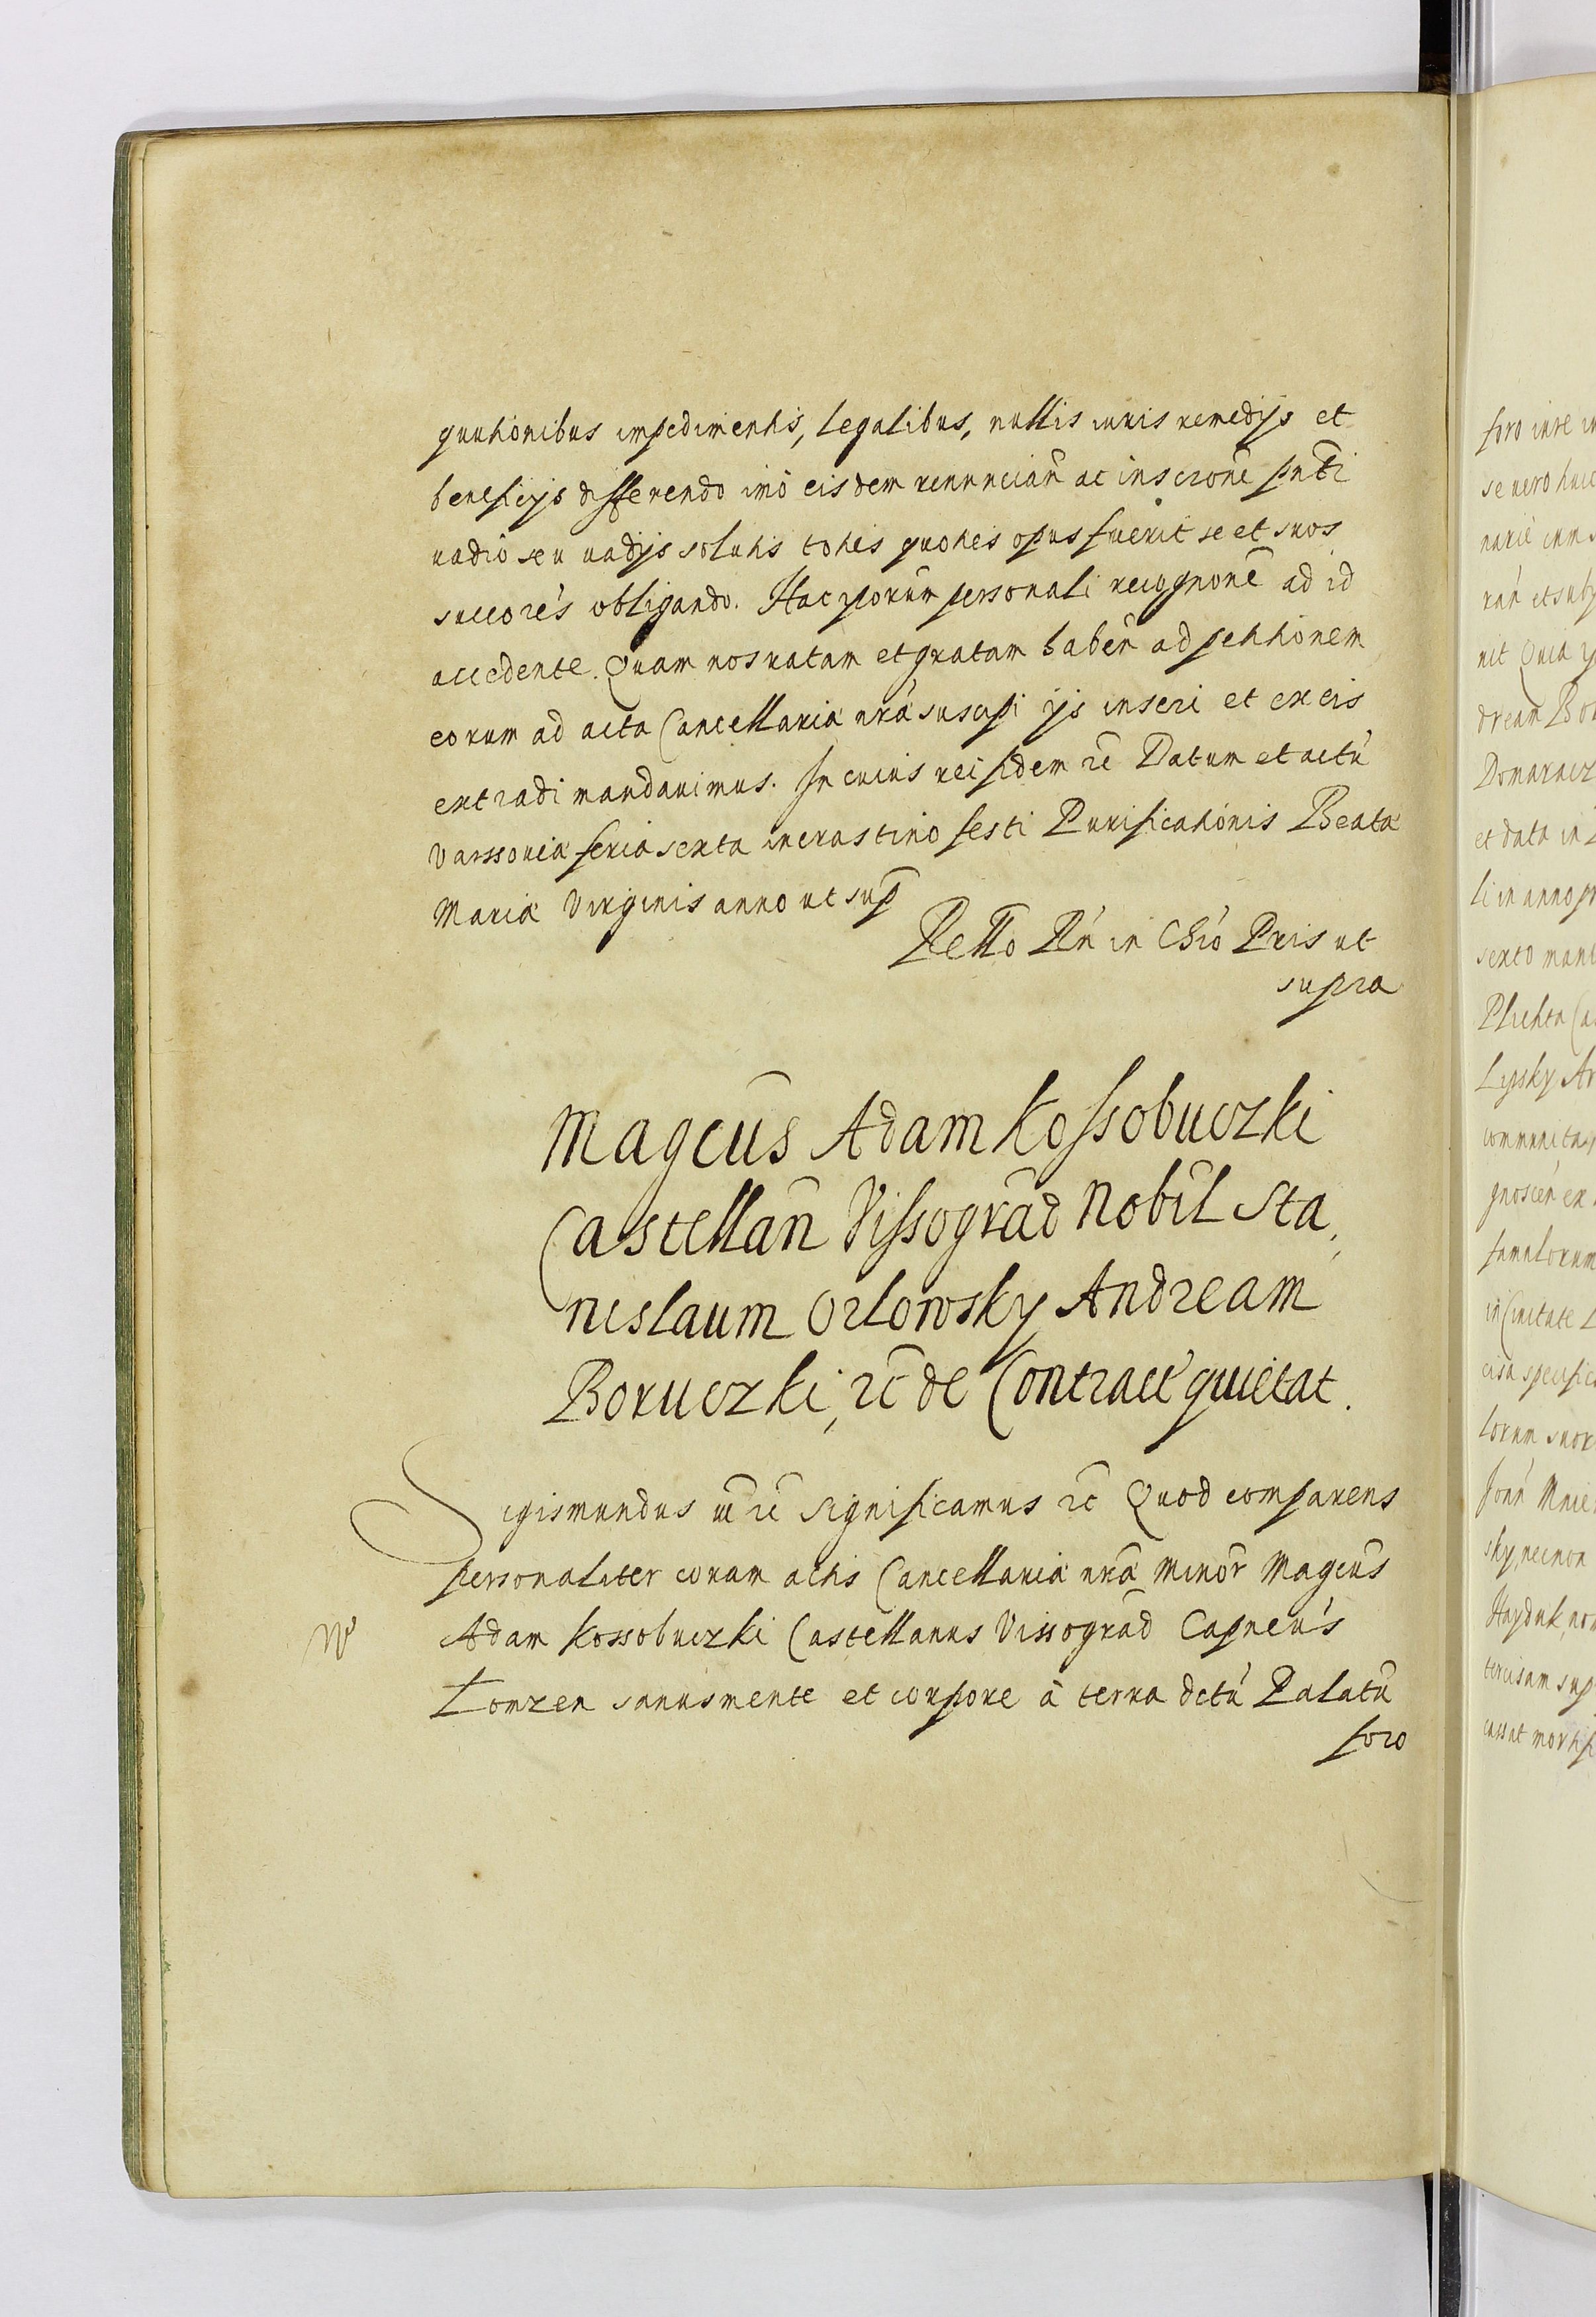 quutionibus impedimentis, legalibus, nullis iuris remedijs et
beneficijs differendo imò eisdem renunciañ ac inscrone pñti
uadio seu uadijs solutis toties quoties opus fuerit se et suos
succorés obligando. Hac iporum personali recognone ad id
accedente. Quam nos ratam et gratam habeñ ad petitionem
eorum ad acta Cancellaria nrâ suscipi ijs inseri et ex eis
extradi mandauimus. In cuius rei fidem rc Datum et actú
Varssouia feria sexta incrastino festi Purificationis Beata
Maria Virginis anno ut sup
Rello Rń in Chió Pris ut
supra
Magcus Adam Kossobuczki
Castellan Vissograd Nobil Sta,
nislaum Orlowsky Andream
Boruczki, rc de Contract quietat.
Sigismundus rc rc significamus rc Quod comparens
personaliter coram actis Cancellaria nra minor Magcus
Adam Kossobuczki Castellanus Vissograd Capneús
Lomzen sanus mente et corpore à terra dctú Palatu
foro
foro iure in
se uero huic
narié cum s
rań et subj
nit Quia
dream Bor
Domaracz
et data in
li in anno pr
sexto mane
Plichta Ca
Lipsky Ar
communita
gnoscen ex
famulorum
in Ciuitate L
cisa specifica
lorum suor
Joan Mnie
sky, necnon
Hayduk, nom
tercisam sup
cassat mortif